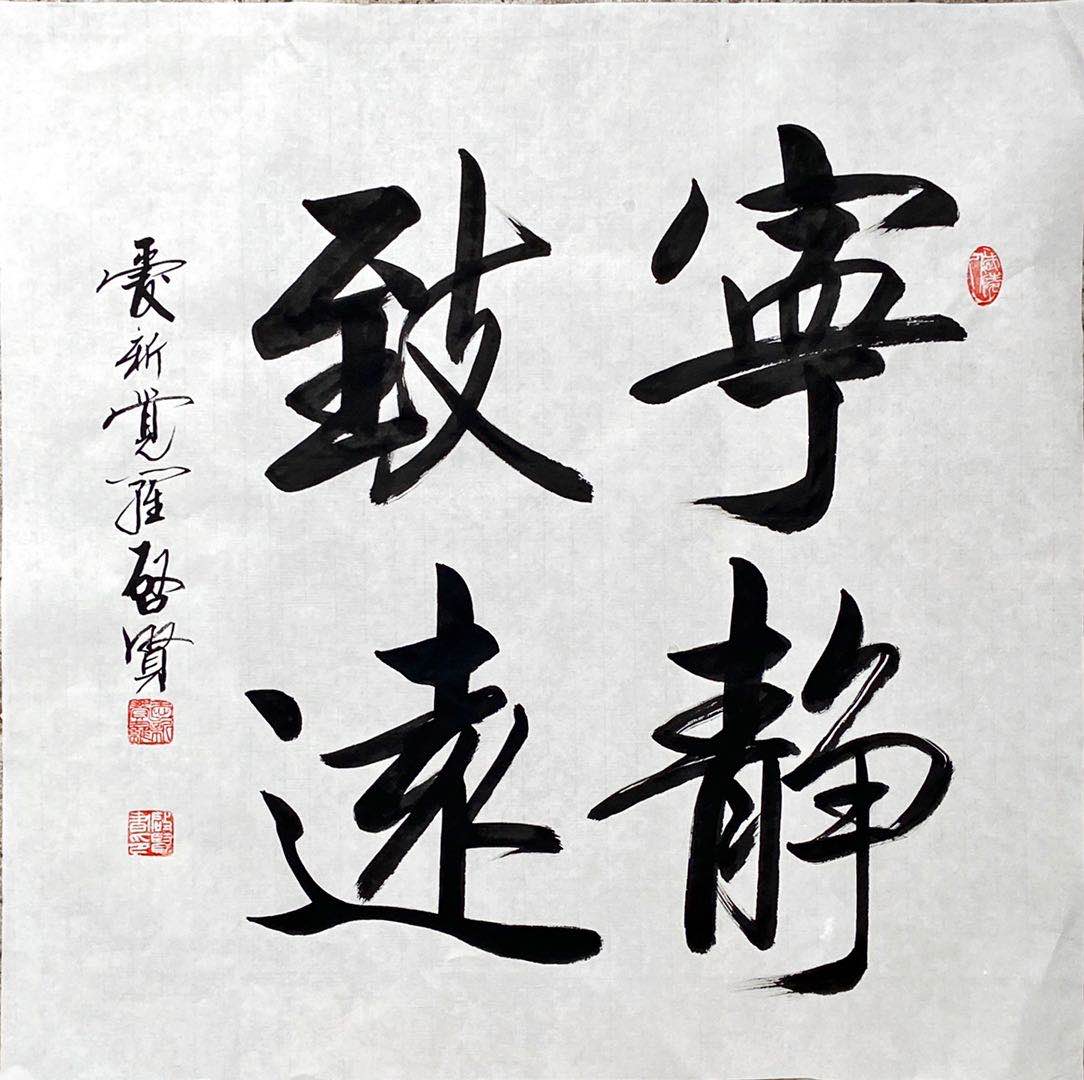 寧靜
致遠
愛新覚羅啓賢